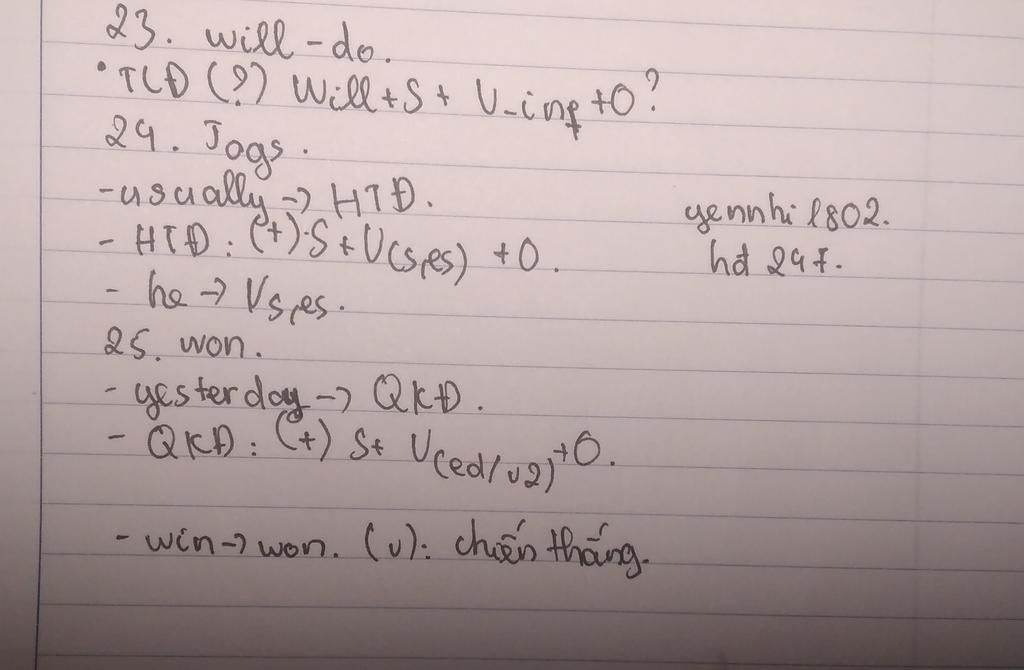 23. will - do.
• TLĐ (?) Will + S + V-inf + O?
24. Jogs.
- usually -> HTĐ.
- HTĐ: (+) S + V(s,es) + O.
- he -> Vs,es.
yennhi1802.
hđ 247.
25. won.
- yesterday -> QKĐ.
- QKĐ: (+) S + V(ed/v2) + O.
- win -> won. (v): chiến thắng.